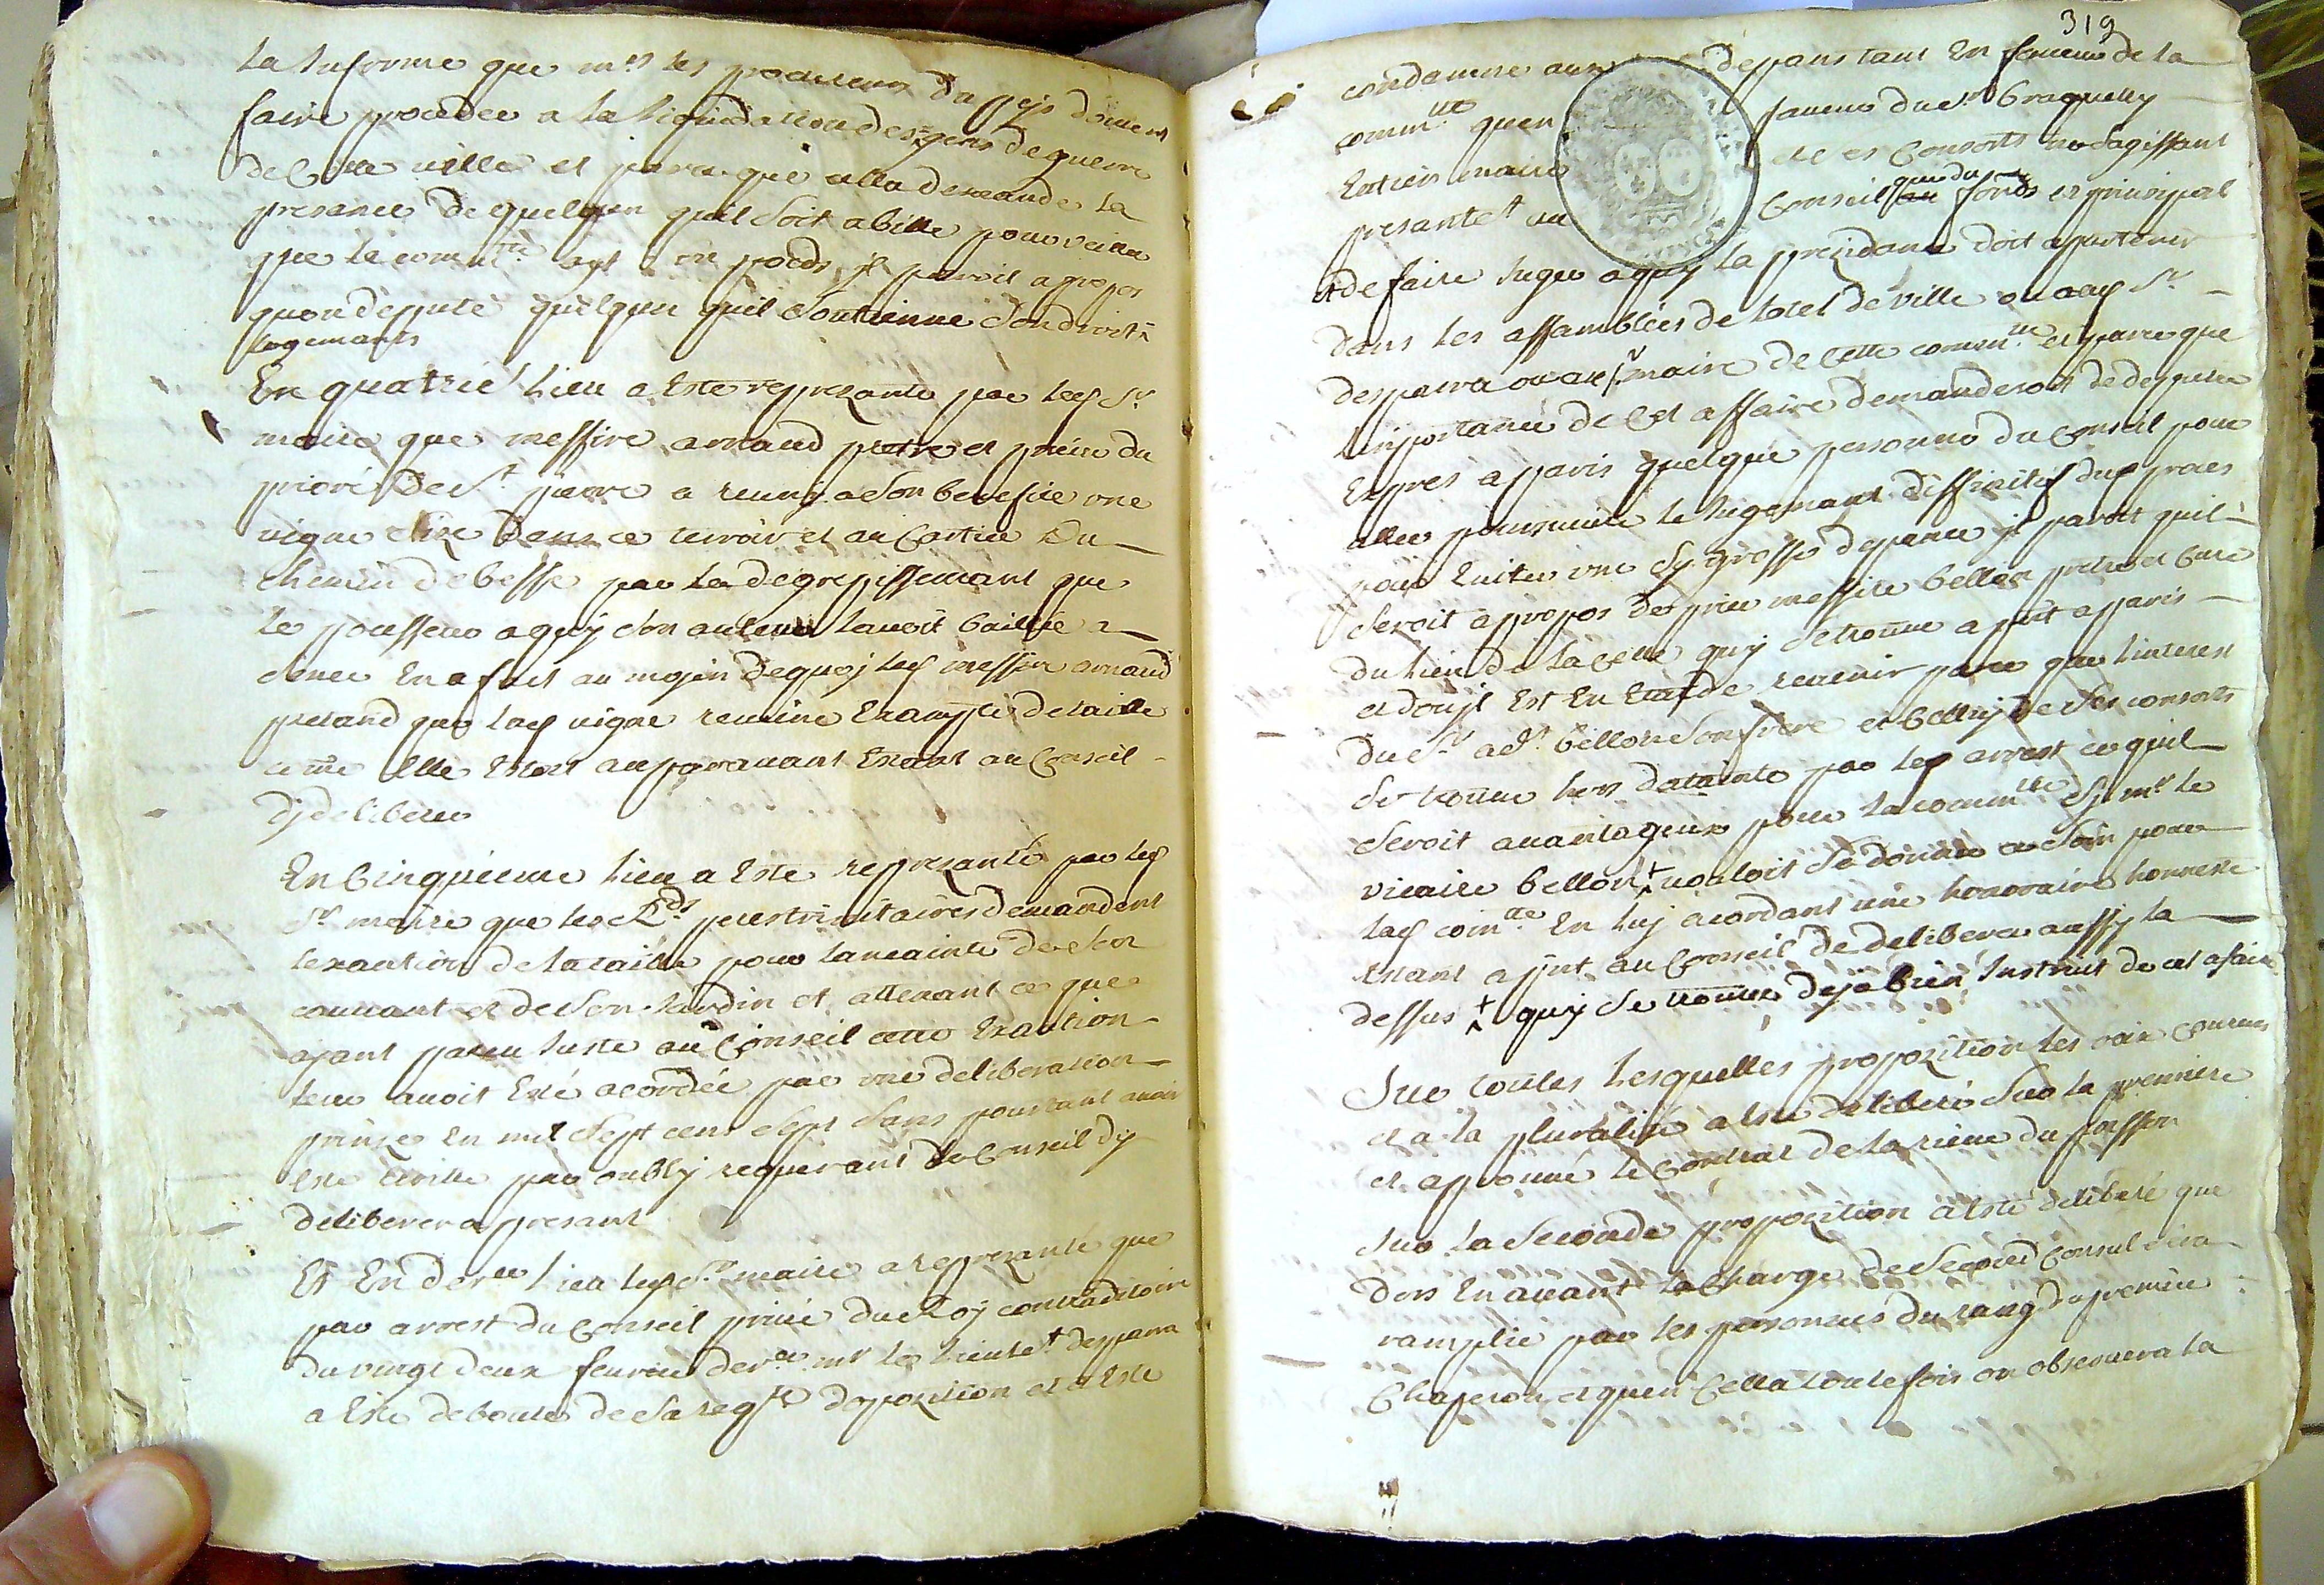 la Informe que mrs les procureurs du peis doivent
faire proceder a la liquidation des gens de guerre
de cette ville et parce que alla demande la
presance de quelqun quil soit abille pour veiller
que la commté aye une poids jl paroit a propos
quon depute quelqun quil soutienne son droit
logemants
En quatrie lieu a este reprezanté par led sr
maire que messire arnaud pretre et prieur du
prioré de st pierre a reuny a son benefice une
vigne size dans ce terroir et au cartier Du
chemin de besse par la degrepissemant que
le pousseur a quy son auteur lauoit baillée a
cence En a fait au mojen de quoj led messire arnaud
pretand que lad vigne reuiene Exampte de taille
come elle Estoit auparauant Estant au Conseil
dj deliberer
En Cinquieme lieu a este represanté par led
sr maire que les Rds peres trinitaires demandent
lexantion de la taille pour lancainte de son
couuant et de son Jardin et attenant ce que
ajant pareu Juste au Conseil cette Exantion
leur auoit Esté acordée par une deliberation
prinze En mil sept cens sept sans pourtant auoir
este écritte par oubly requerant le Conseil dy
deliberer a presant
Et En derer lieu led sr maire a represanté que
par arrest du Conseil priué du Roy contradictoire
du vingt deux feurier derer mr le lieutet desparra
a Este deboute de sa regte dopozition et a Este
319
condamné aux depans tant En faueur de la
commté quen faueur du sr Braquetty
Entien maire et ses Consorts ne sagissant
presantet au Conseil que du fonds et principal
et de faire Juger a quy la prezidance doit apartenir
dans les assamblées de lotel de ville ou aud sr
desparra ou au sr maire de cette commté et parce que
limportance de cet affaire demanderoit de deputer
Expres a paris quelque personne du Conseil pour
aller poursuiure le Jugemant diffinitif dud proces
pour Euiter une sy grosse depance jl paroit quil
seroit a propos de prier messire bellon pretre et Cure
du lieu de la Celle quy se trouue a pnt a paris
et doujl Est En Etat de reuenir parce que linterest
du sr adt bellon son frere et Celluy de ses consorts
se trouue hors datainte par led arrest ce quil
seroit auantageux pour la commté sy mr le
vicaire bellon + vouloit se donner ce soin pour
lad comté En luy acordant une honoraire honneste
Estant a pnt au Conseil de deliberer aussy la
dessus + quy se trouue deja bien Instruit de cet afaire
Sur toutes lesquelles propozition les voix Courues
et a la pluralité a este deliberé Sur la premiere
et aprouué le Contrat de la riéue du poisson
Sur la seconde propozition a Esté deliberé que
dors En auant la Charge de second Consul sera
ramplie par les personnes du rang du premier
Chaperon et quen Cella toutefois on obseruera la